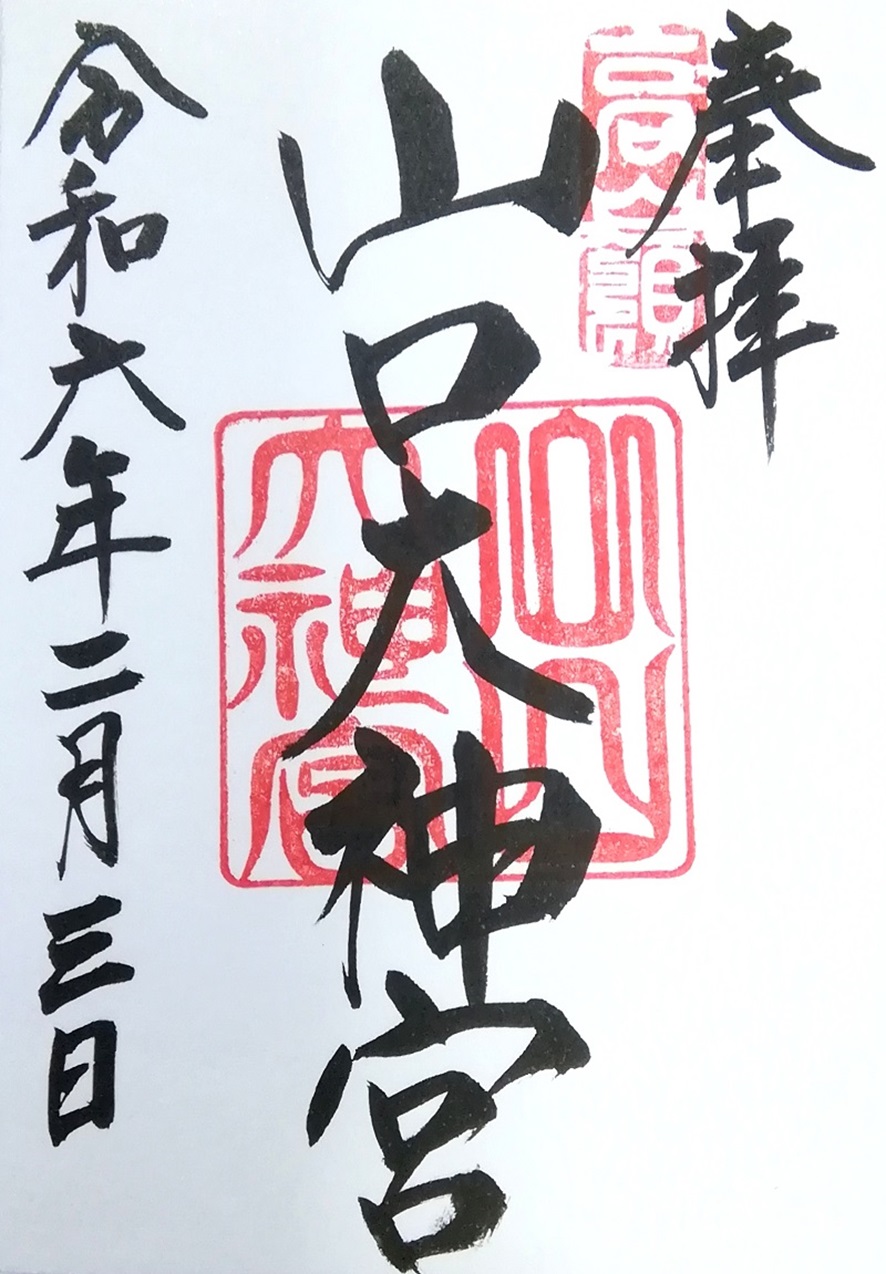 奉拝
高嶺
山口大神宮
山口
大神宮
令和六年二月三日